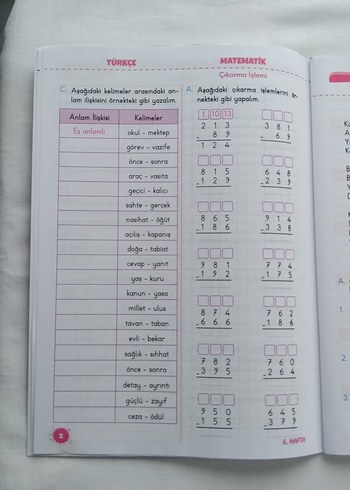 TÜRKÇE
C. Aşağıdaki kelimeler arasındaki an-
lam ilişkisini örnekteki gibi yazalım.
Anlam İlişkisi Kelimeler
Eş anlamlı okul - mektep
görev - vazife
önce - sonra
araç - vasıta
geçici - kalıcı
sahte - gerçek
nasihat - öğüt
açılış - kapanış
doğa - tabiat
cevap - yanıt
yaş - kuru
kanun - yasa
millet - ulus
tavan - taban
evli - bekar
sağlık - sıhhat
önce - sonra
detay - ayrıntı
güçlü - zayıf
ceza - ödül
MATEMATİK
Çıkarma İşlemi
A. Aşağıdaki çıkarma işlemlerini ör-
nekteki gibi yapalım.
1 10 13
2 1 3 3 8 1
- 8 9 - 6 9
1 2 4
8 1 5 6 4 8
- 1 2 9 - 2 3 9
8 6 5 9 1 4
- 1 8 6 - 3 3 8
9 8 1 7 7 4
- 1 9 2 - 1 7 5
8 7 4 7 6 2
- 6 6 6 - 1 8 6
7 8 2 7 6 0
- 3 9 5 - 2 6 4
9 5 0 6 4 5
- 1 5 5 - 3 7 9
6. HAFTA
A.
1.
2.
3.